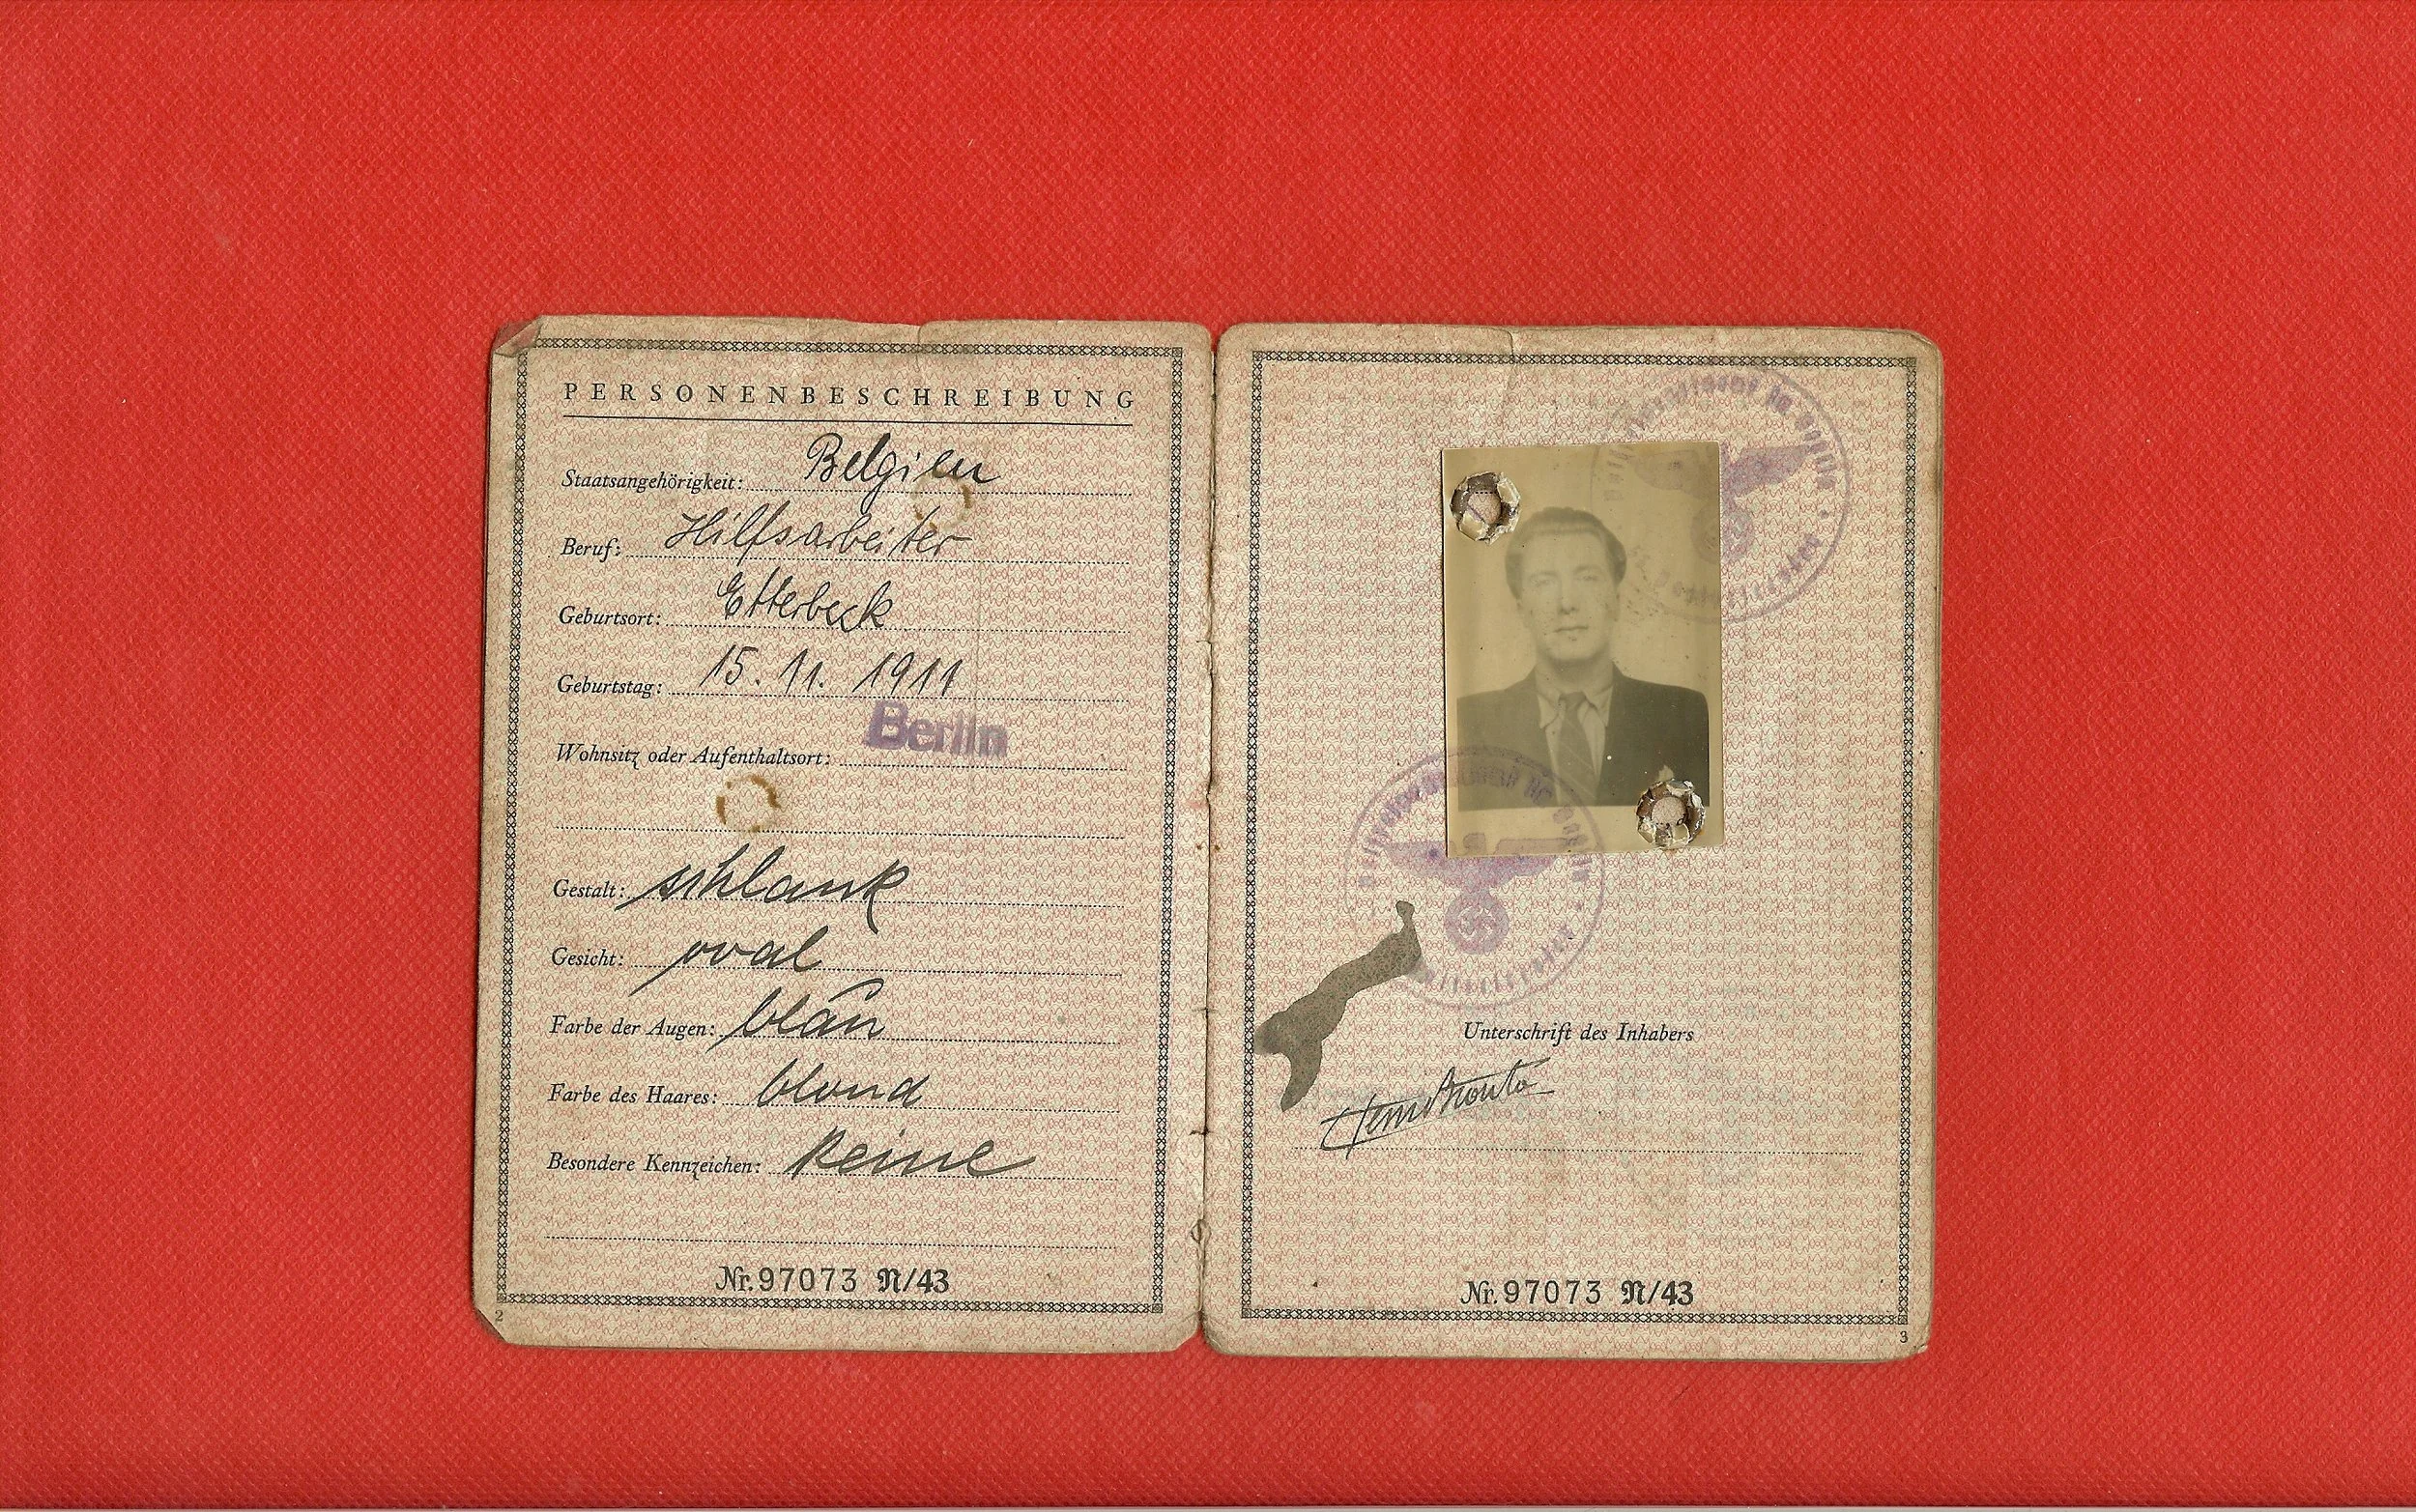 PERSONENBESCHREIBUNG
Staatsangehörigkeit: Belgien
Beruf: Hilfsarbeiter
Geburtsort: Etterbeek
Geburtstag: 15. 11. 1911
Wohnsitz oder Aufenthaltsort: Berlin
Gestalt: schlank
Gesicht: oval
Farbe der Augen: blau
Farbe des Haares: blond
Besondere Kennzeichen: keine
Nr. 97073 N/43
2
in Berlin
Unterschrift des Inhabers
Nr. 97073 N/43
3